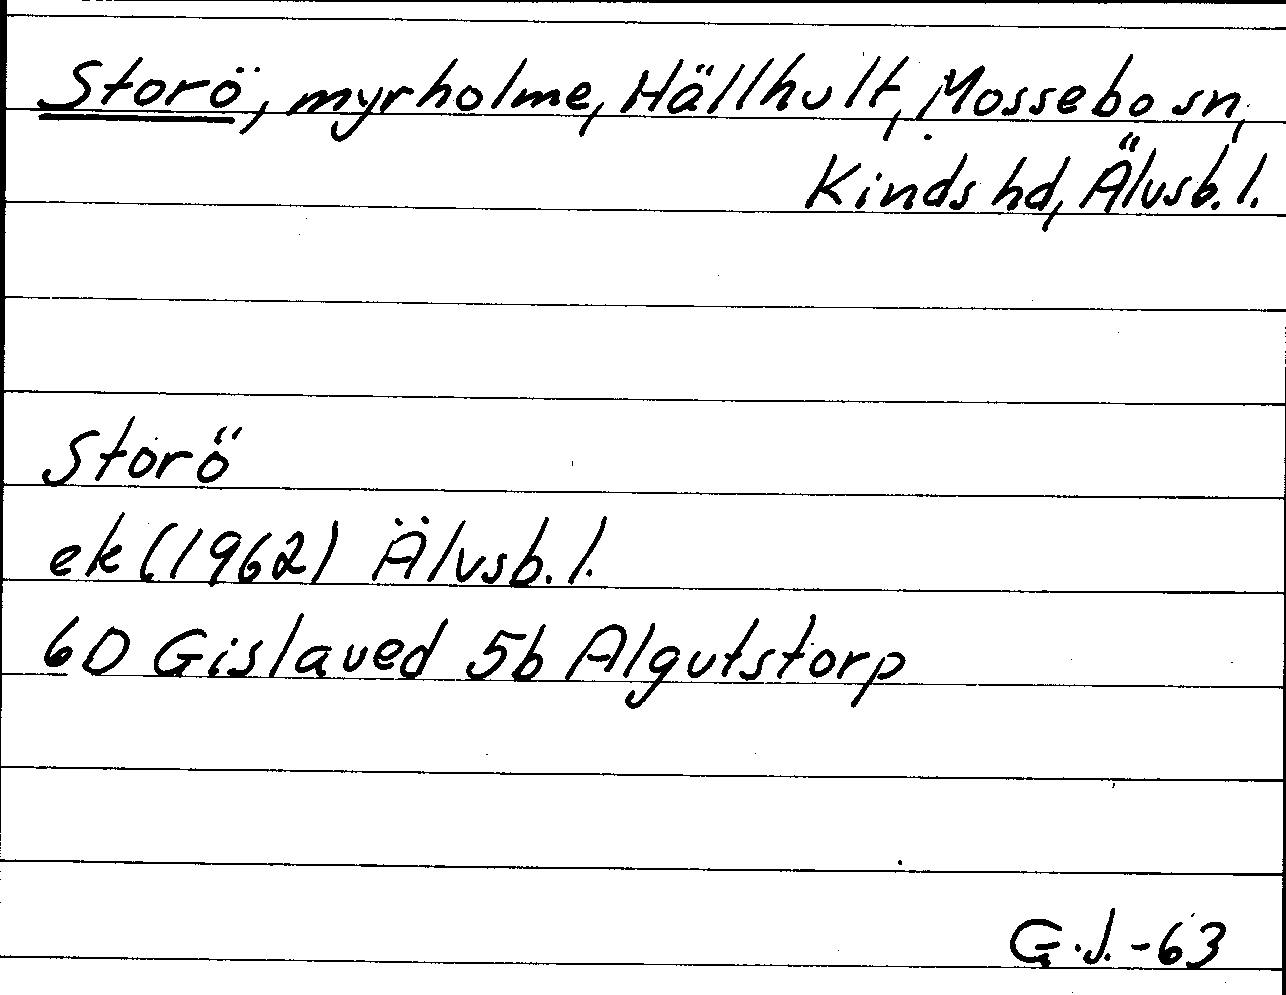 Storö, myrholme, Hällhult, Mossebo sn,
Kinds hd, Älvsb. l.
Storö
ek (1962) Älvsb. l.
6D Gislaved 5b Algutstorp
G.J. -63